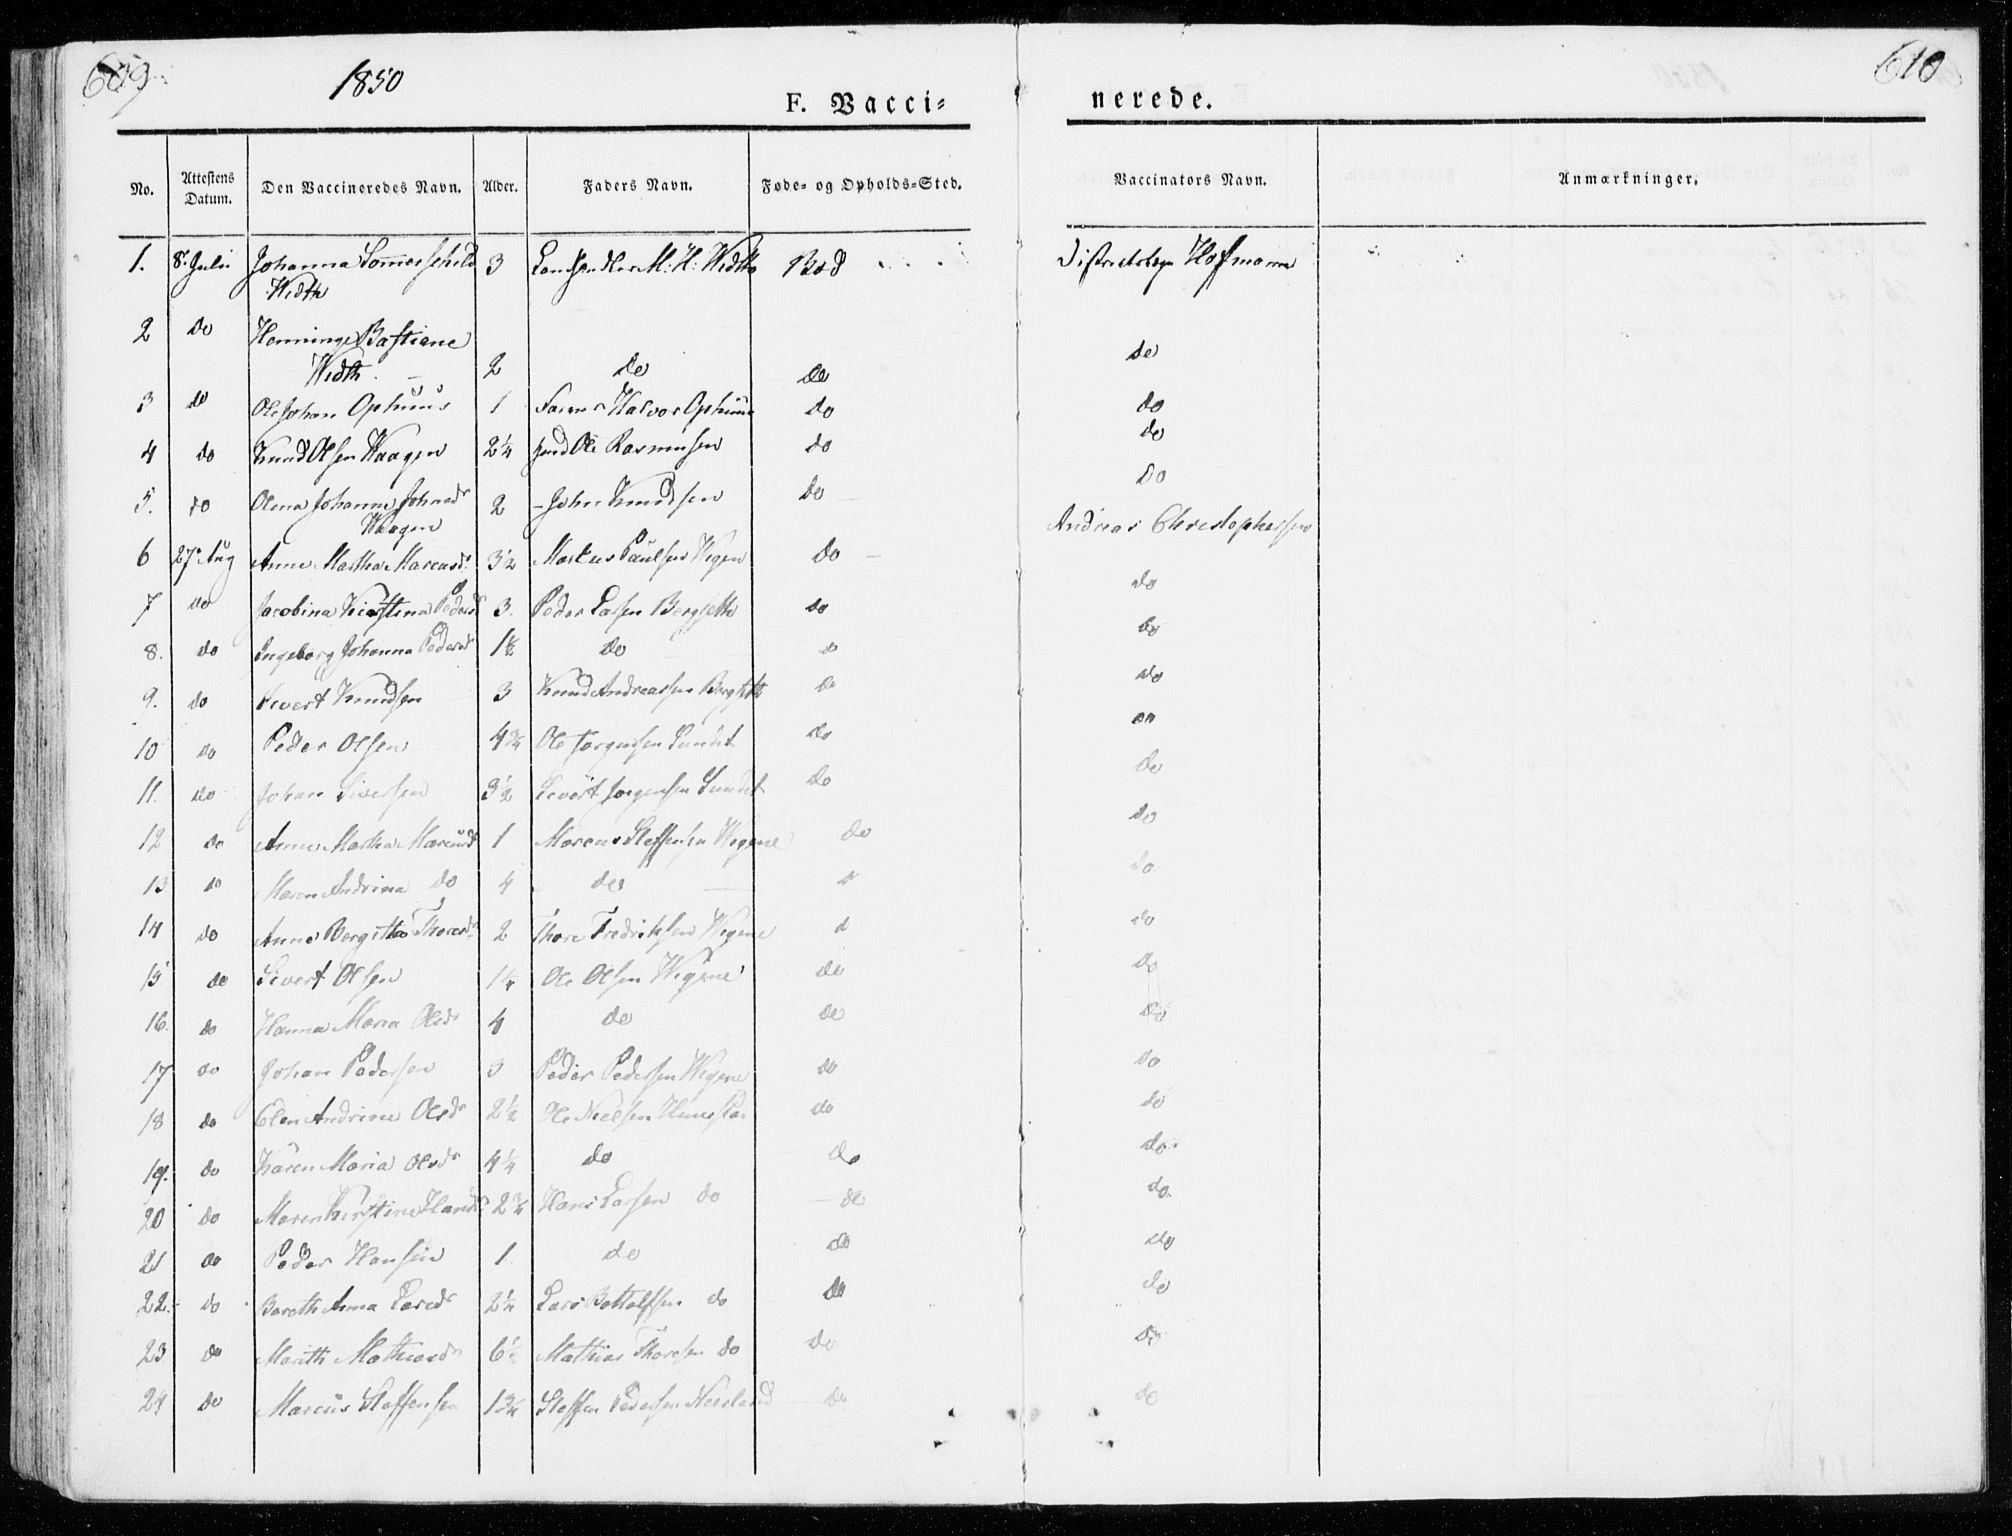 609
1850
F. Vacci=
nerede.
610
No. Attestens Datum. Den Vaccineredes Navn. Alder. Faders Navn. Føde- og Opholds-Sted. Vaccinators Navn. Anmærkninger.
1. 8. Juli Johanna 3 M: H: Width Bod Hoffmann
Width
2 do Henninge Bastiane
Width 2 do do do
3 do Ole Johan Ophuus 1 Halvor Ophuus do do
4 do Knud Olsen Haagen 2¼ Ole Rasmusen do do
5. do Olena Johanna Johnsdr 2 John Knudsen do do
Haagen
6 27 Aug Anne Martha Marcusdr 3½ Markus Paulsen Wegen do Andreas Christophersen
7 do Jacobina Kirstina Pedersdr 3. Peder Larsen Bergseth do do
8. do Ingeborg Johanna Pedersdr 1½ do do do
9. do Sivert Knudsen 3 Knud Andreassen Bergseth do do
10 do Peder Olsen 4¾ Ole Jørgensen Sundet do do
11. do Johan Siversen 3½ Sivert Jørgensen Sundet do do
12 do Anne Martha Marcusdr 1 Marcus Steffensen Wegene do do
13 do Maren Andrina do 4 do d do
14 do Anne Bergitha Thoresdr 2 Thore Fredriksen Wegene d do
15 do Sivert Olsen 1¼ Ole Olsen Wegene do do
16. do Hanna Maria Olsdr 4 do do do
17 do Johan Pedersen 3 Peder Pedersen Wegene do do
18 do Elen Andrine Olsdr 2½ Ole Nielsen do do
19. do Karen Maria Olsdr 4¼ do do do
20 do Maren Kirstine Hansdr 2¾ Hans Larsen do do do
21 do Peder Hansen 1 do do do
22. do Bereth Anna Larsdr 2¼ Lars Bottolfsen do do do
23. do Marith Mathiasdr 6½ Mathias Thoresen do do do
24 do Marcus Steffensen 1¾ Steffen Pedersen Neerland do do